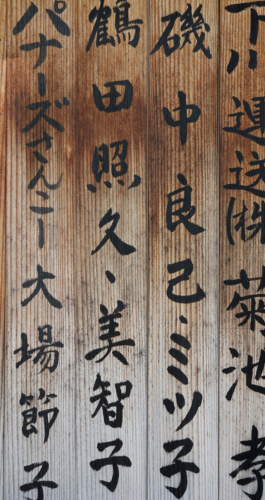 下川運送㈱菊池孝
磯中良己、ミツ子
鶴田照久、美智子
パナーズさんこー大場節子